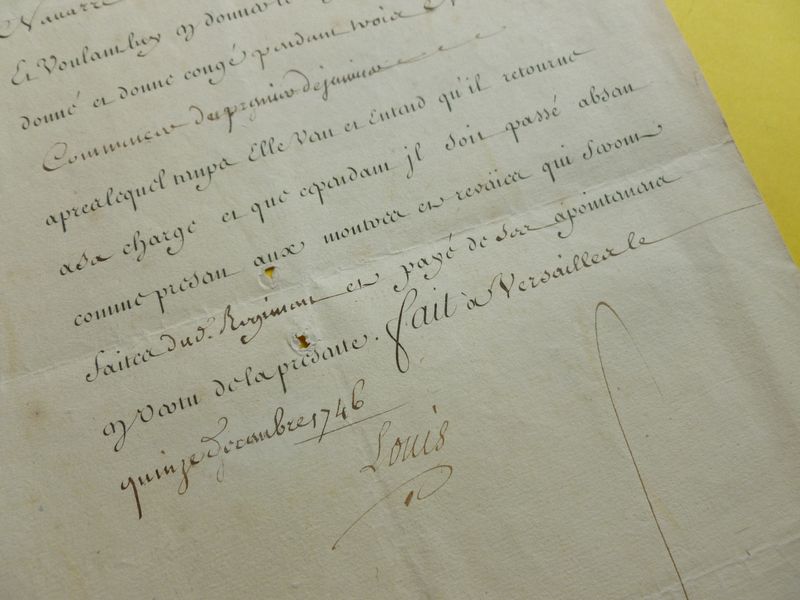 Navarre
Et Voulant luy y donner le
donné et donne congé pendant trois
Commencer du premier de janvier
apres lequel temps Elle Veut et Entend qu'il retourne
a sa charge et que cependant jl soit passé absent
comme present aux montres et reveües qui Seront
faites dud. Regiment et payé de ses apointemens
en Vertu de la presente. fait à Versailles le
quinze Decembre 1746
Louis